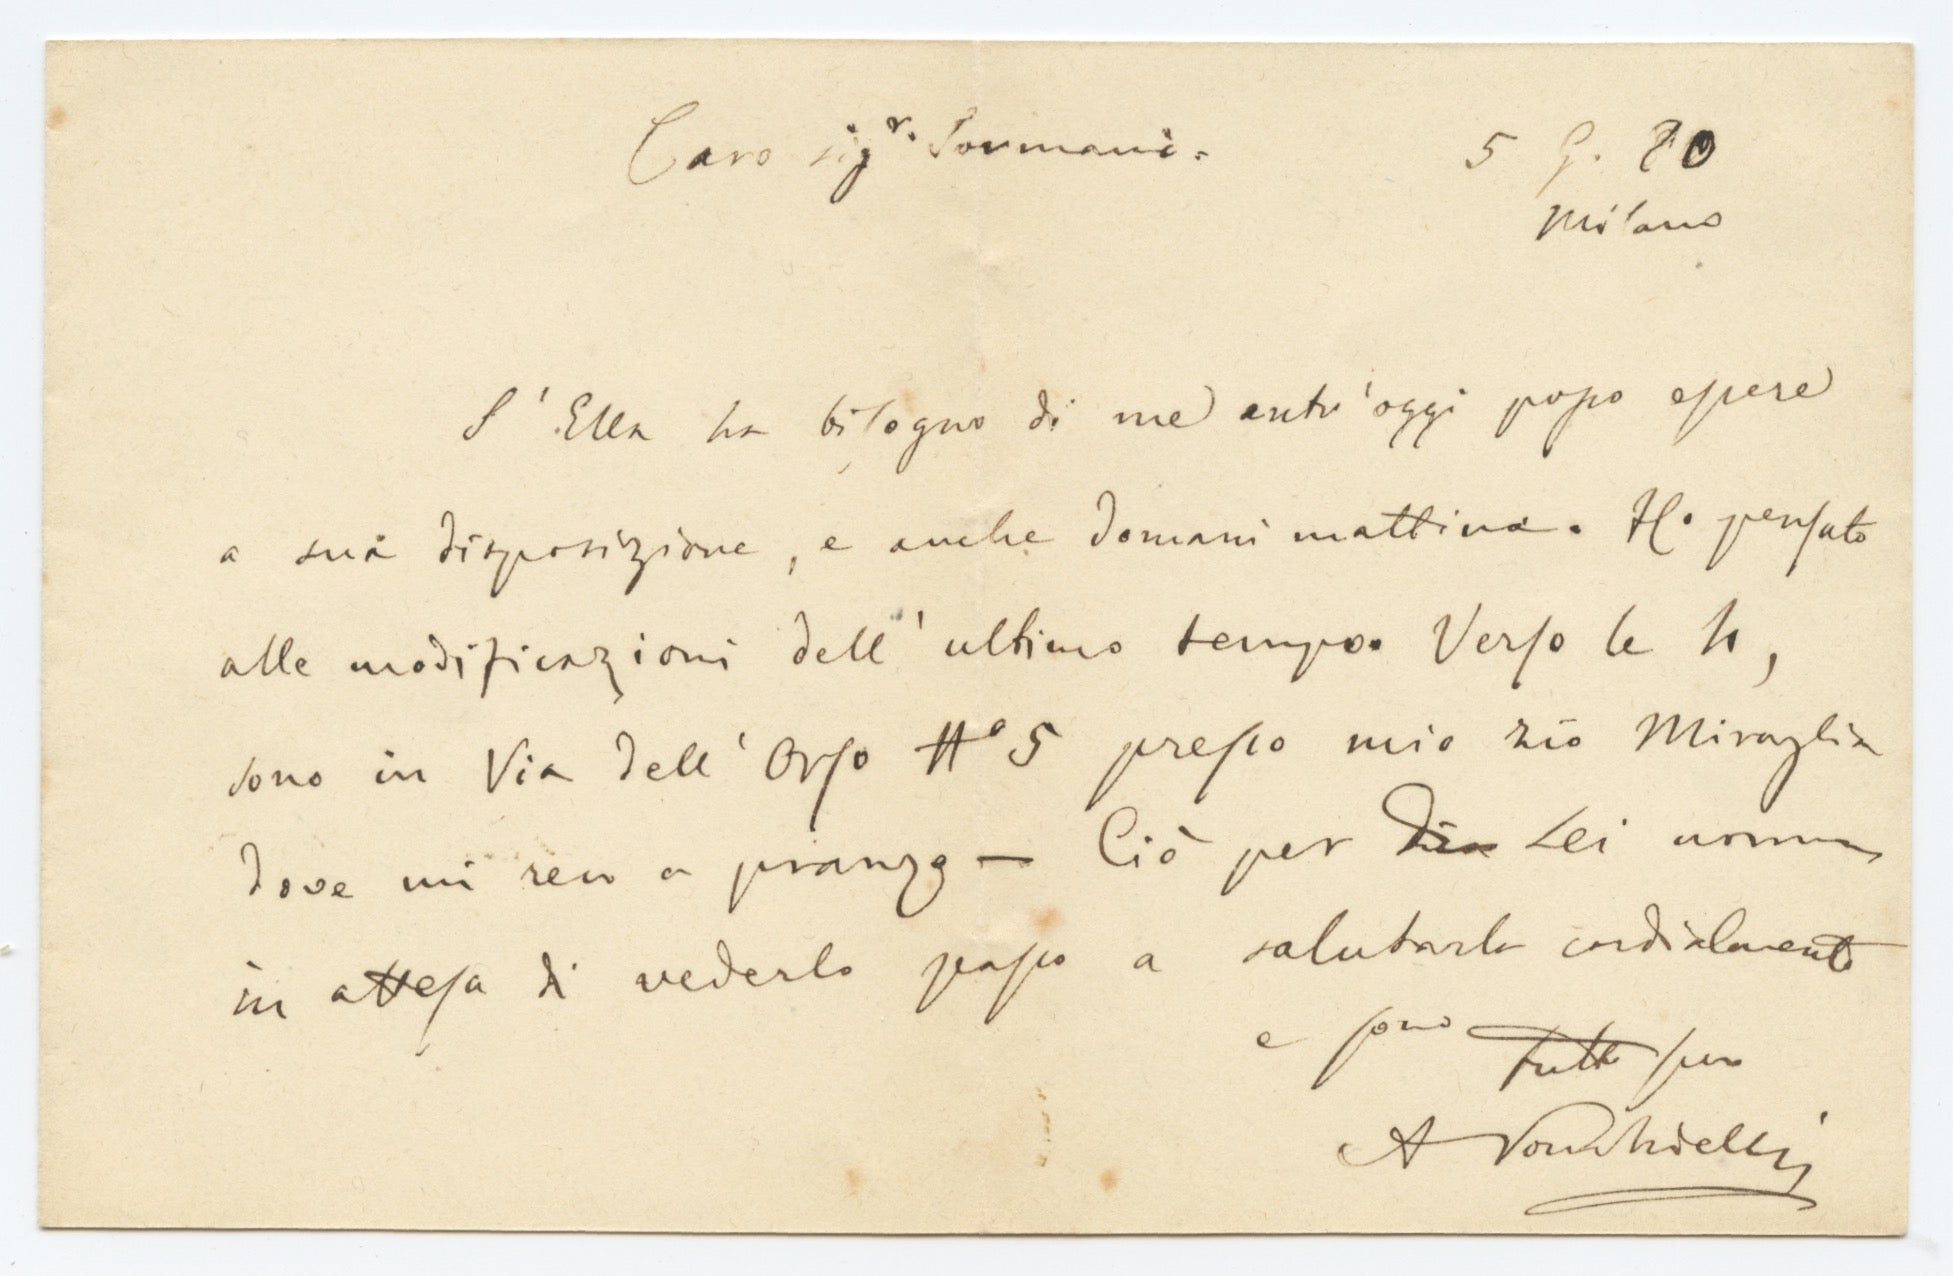 Caro sigr. Sormani.
5 G. 80
Milano
S'Ella ha bisogno di me antr'oggi posso essere
a sua disposizione, e anche domani mattina. Ho pensato
alle modificazioni dell'ultimo tempo. Verso le
sono in Via dell'Orso No 5 presso mio zio Miraglia
dove mi reco a pranzo — Ciò per Lei norma
in attesa di vederlo passo a salutarla cordialmente
e sono tutto suo
A Ponchielli